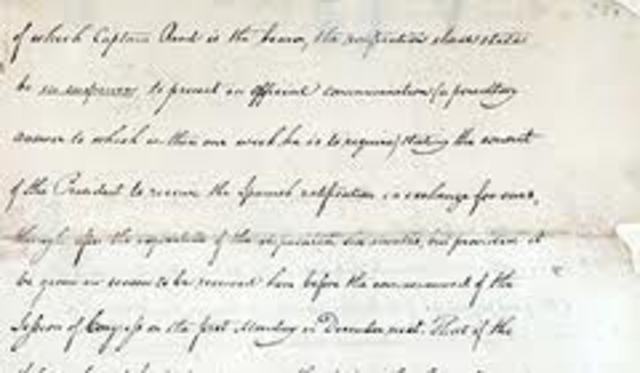 of which Captain Read is the bearer, the ratification shall still
be to present an official communication (a peremptory
answer to which within one week he is to require) stating the consent
of the President to receive the Spanish ratification in exchange for ours,
though after the expiration of the six months, but provided it
be given in season to be received here before the commencement of the
Session of Congress on the first Monday in December next. That if the